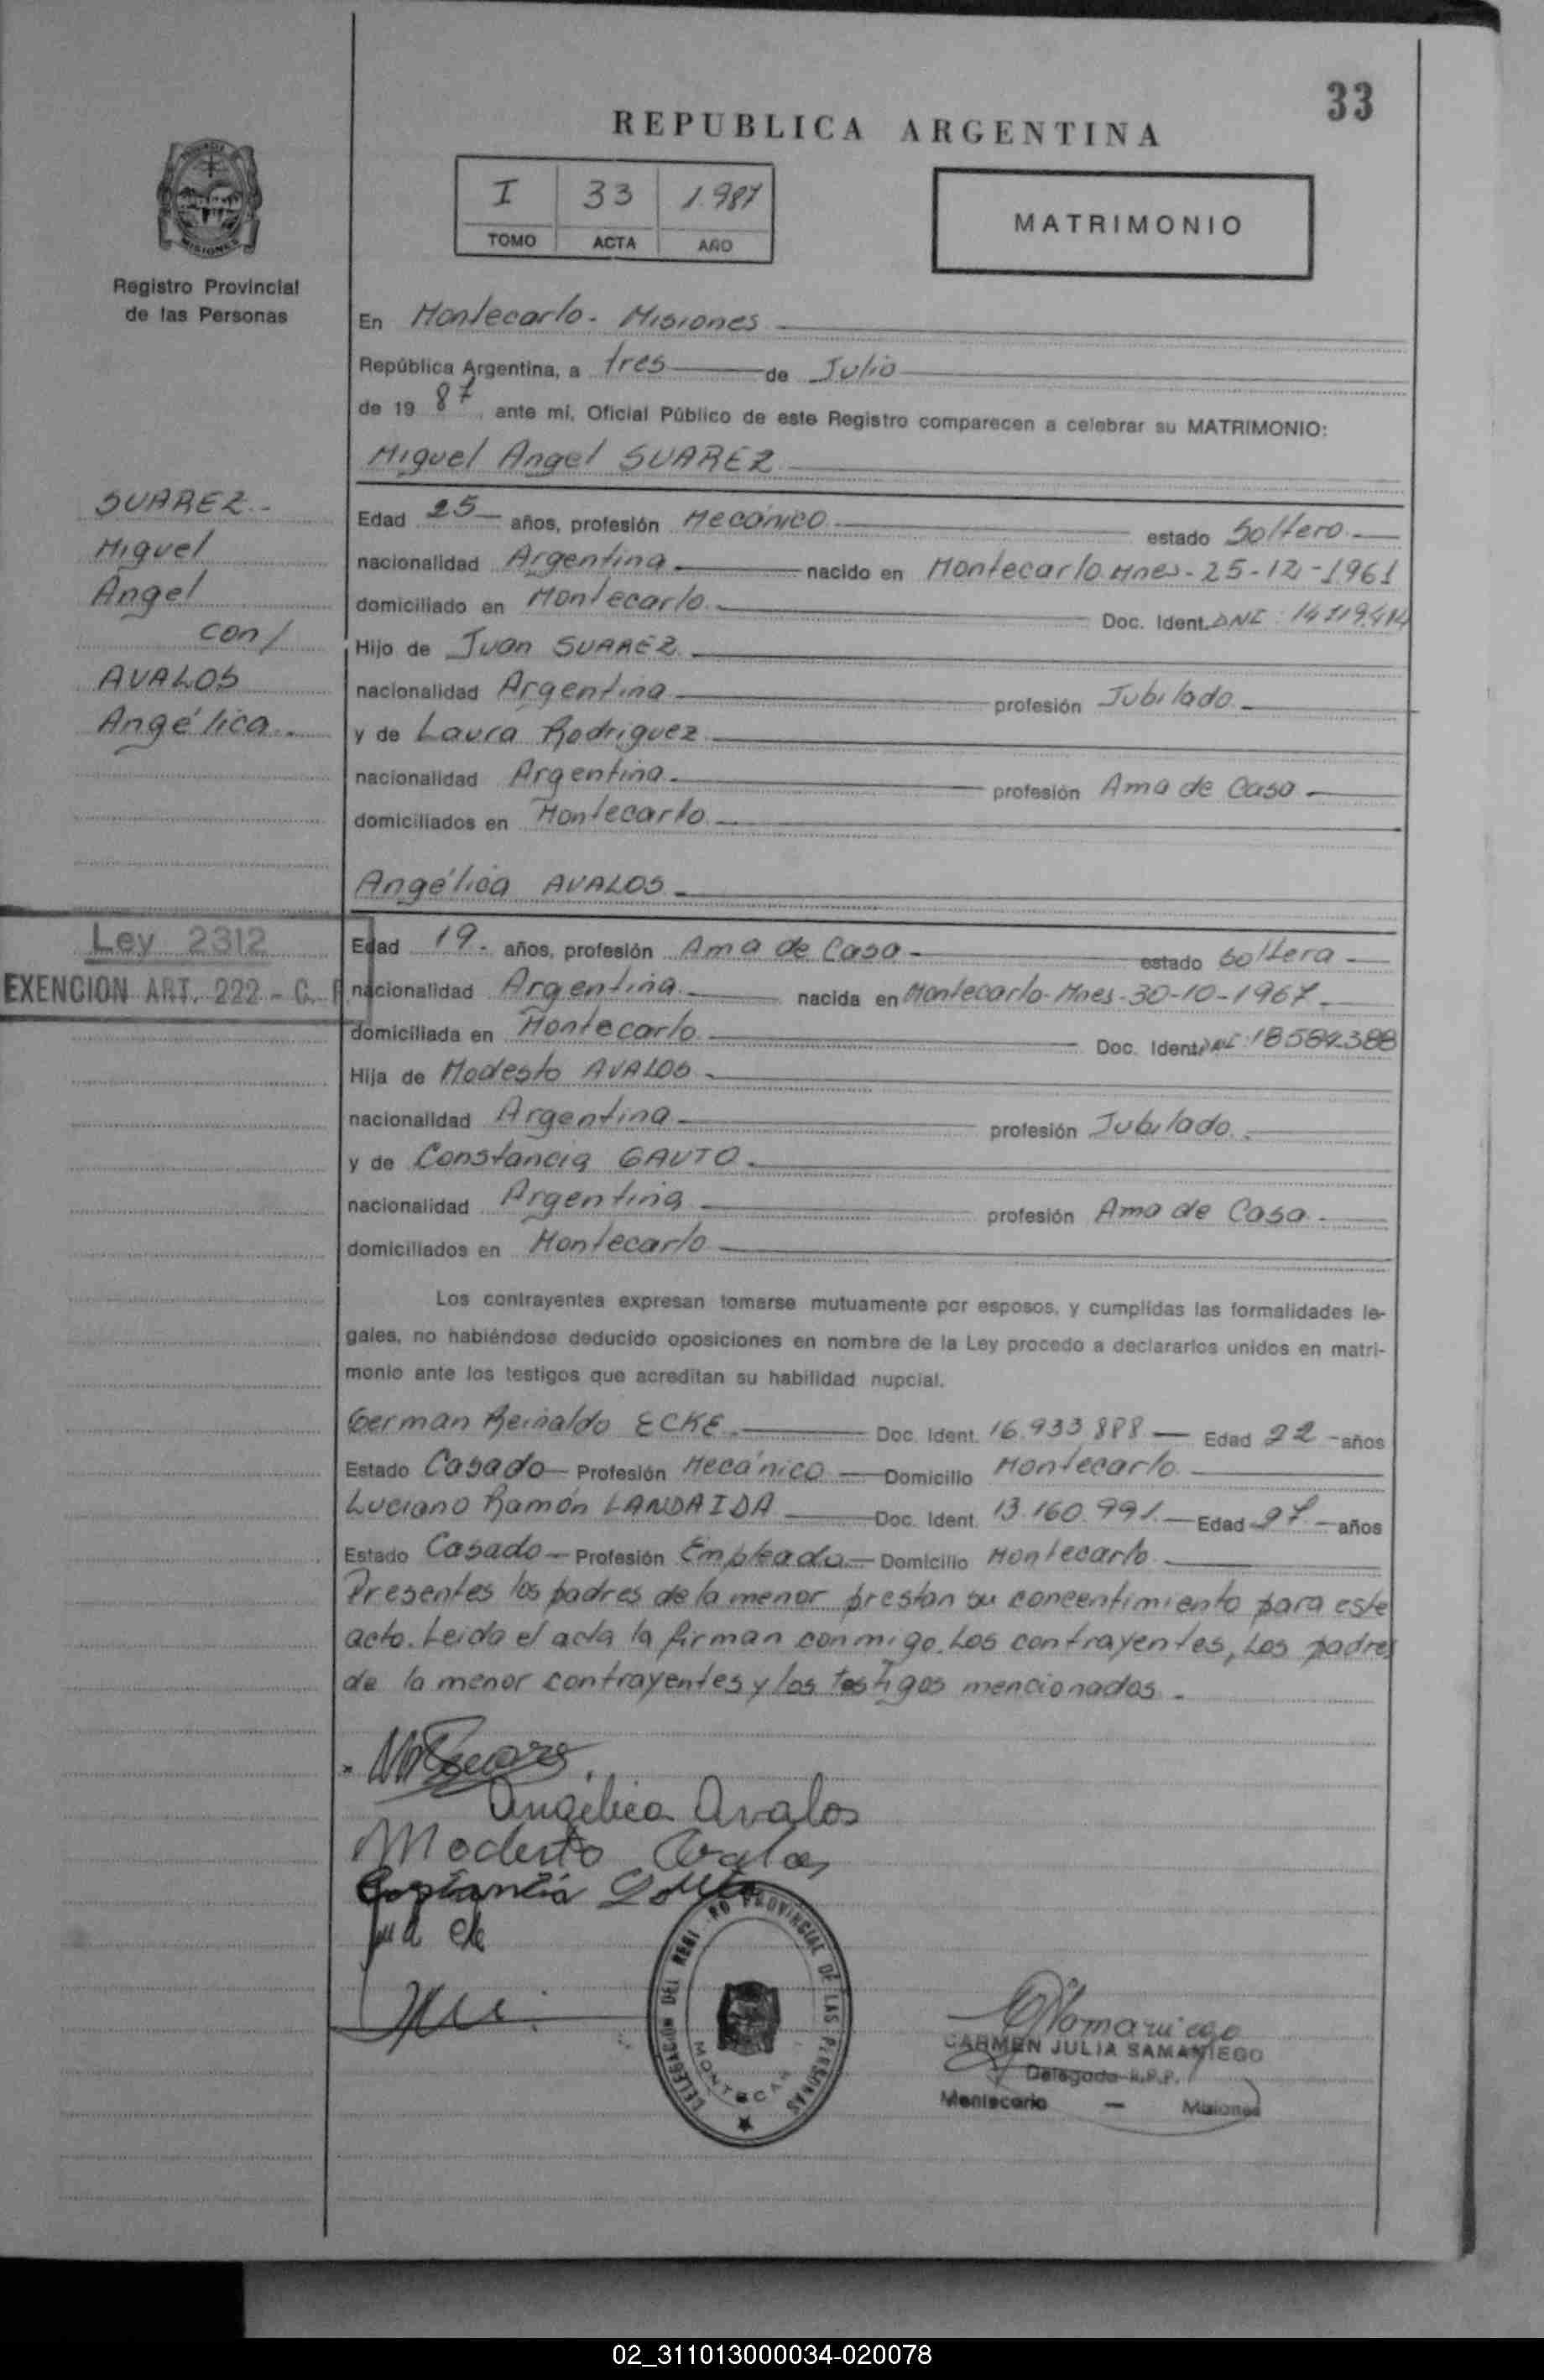 33
REPUBLICA ARGENTINA
I 33 1.987
TOMO ACTA AÑO
MATRIMONIO
MISIONES
Registro Provincial
de las Personas
En Montecarlo - Misiones
República Argentina, a tres de Julio
de 19 87, ante mí, Oficial Público de este Registro comparecen a celebrar su MATRIMONIO:
Miguel Angel SUAREZ
SUAREZ.-
Miguel
Angel
con/
AVALOS
Angélica.-
Edad 25 años, profesión Mecánico estado Soltero
nacionalidad Argentina nacido en Montecarlo Mnes - 25-12-1961
domiciliado en Montecarlo Doc. Ident. DNI: 14.119.414
Hijo de Juan SUAREZ
nacionalidad Argentina profesión Jubilado
y de Laura Rodriguez
nacionalidad Argentina profesión Ama de Casa
domiciliados en Montecarlo
Angélica AVALOS
Ley 2312
EXENCION ART. 222 - C.
Edad 19 - años, profesión Ama de Casa estado Soltera
nacionalidad Argentina nacida en Montecarlo - Mnes - 30-10-1967
domiciliada en Montecarlo Doc. Ident. 18584388
Hija de Modesto AVALOS
nacionalidad Argentina profesión Jubilado
y de Constancia GAUTO
nacionalidad Argentina profesión Ama de Casa
domiciliados en Montecarlo
Los contrayentes expresan tomarse mutuamente por esposos, y cumplidas las formalidades le-
gales, no habiéndose deducido oposiciones en nombre de la Ley procedo a declararlos unidos en matri-
monio ante los testigos que acreditan su habilidad nupcial.
German Reinaldo ECKE Doc. Ident. 16.933.888 Edad 22 - años
Estado Casado Profesión Mecánico Domicilio Montecarlo
Luciano Ramón LANDAIDA Doc. Ident. 13.160.991. Edad 27 - años
Estado Casado Profesión Empleado Domicilio Montecarlo
Presentes los padres de la menor prestan su concentimiento para este
acto. Leida el acta la firman conmigo. Los contrayentes, Los padres
de la menor contrayentes y los testigos mencionados.-
Angélica Avalos
Modesto Avalos
DELEGACION DEL REGI RO PROVINCIAL DE LAS PERSONAS
MONTECAR
CARMEN JULIA SAMANIEGO
Delegada R.P.P.
Montecarlo — Misiones
02_311013000034-020078